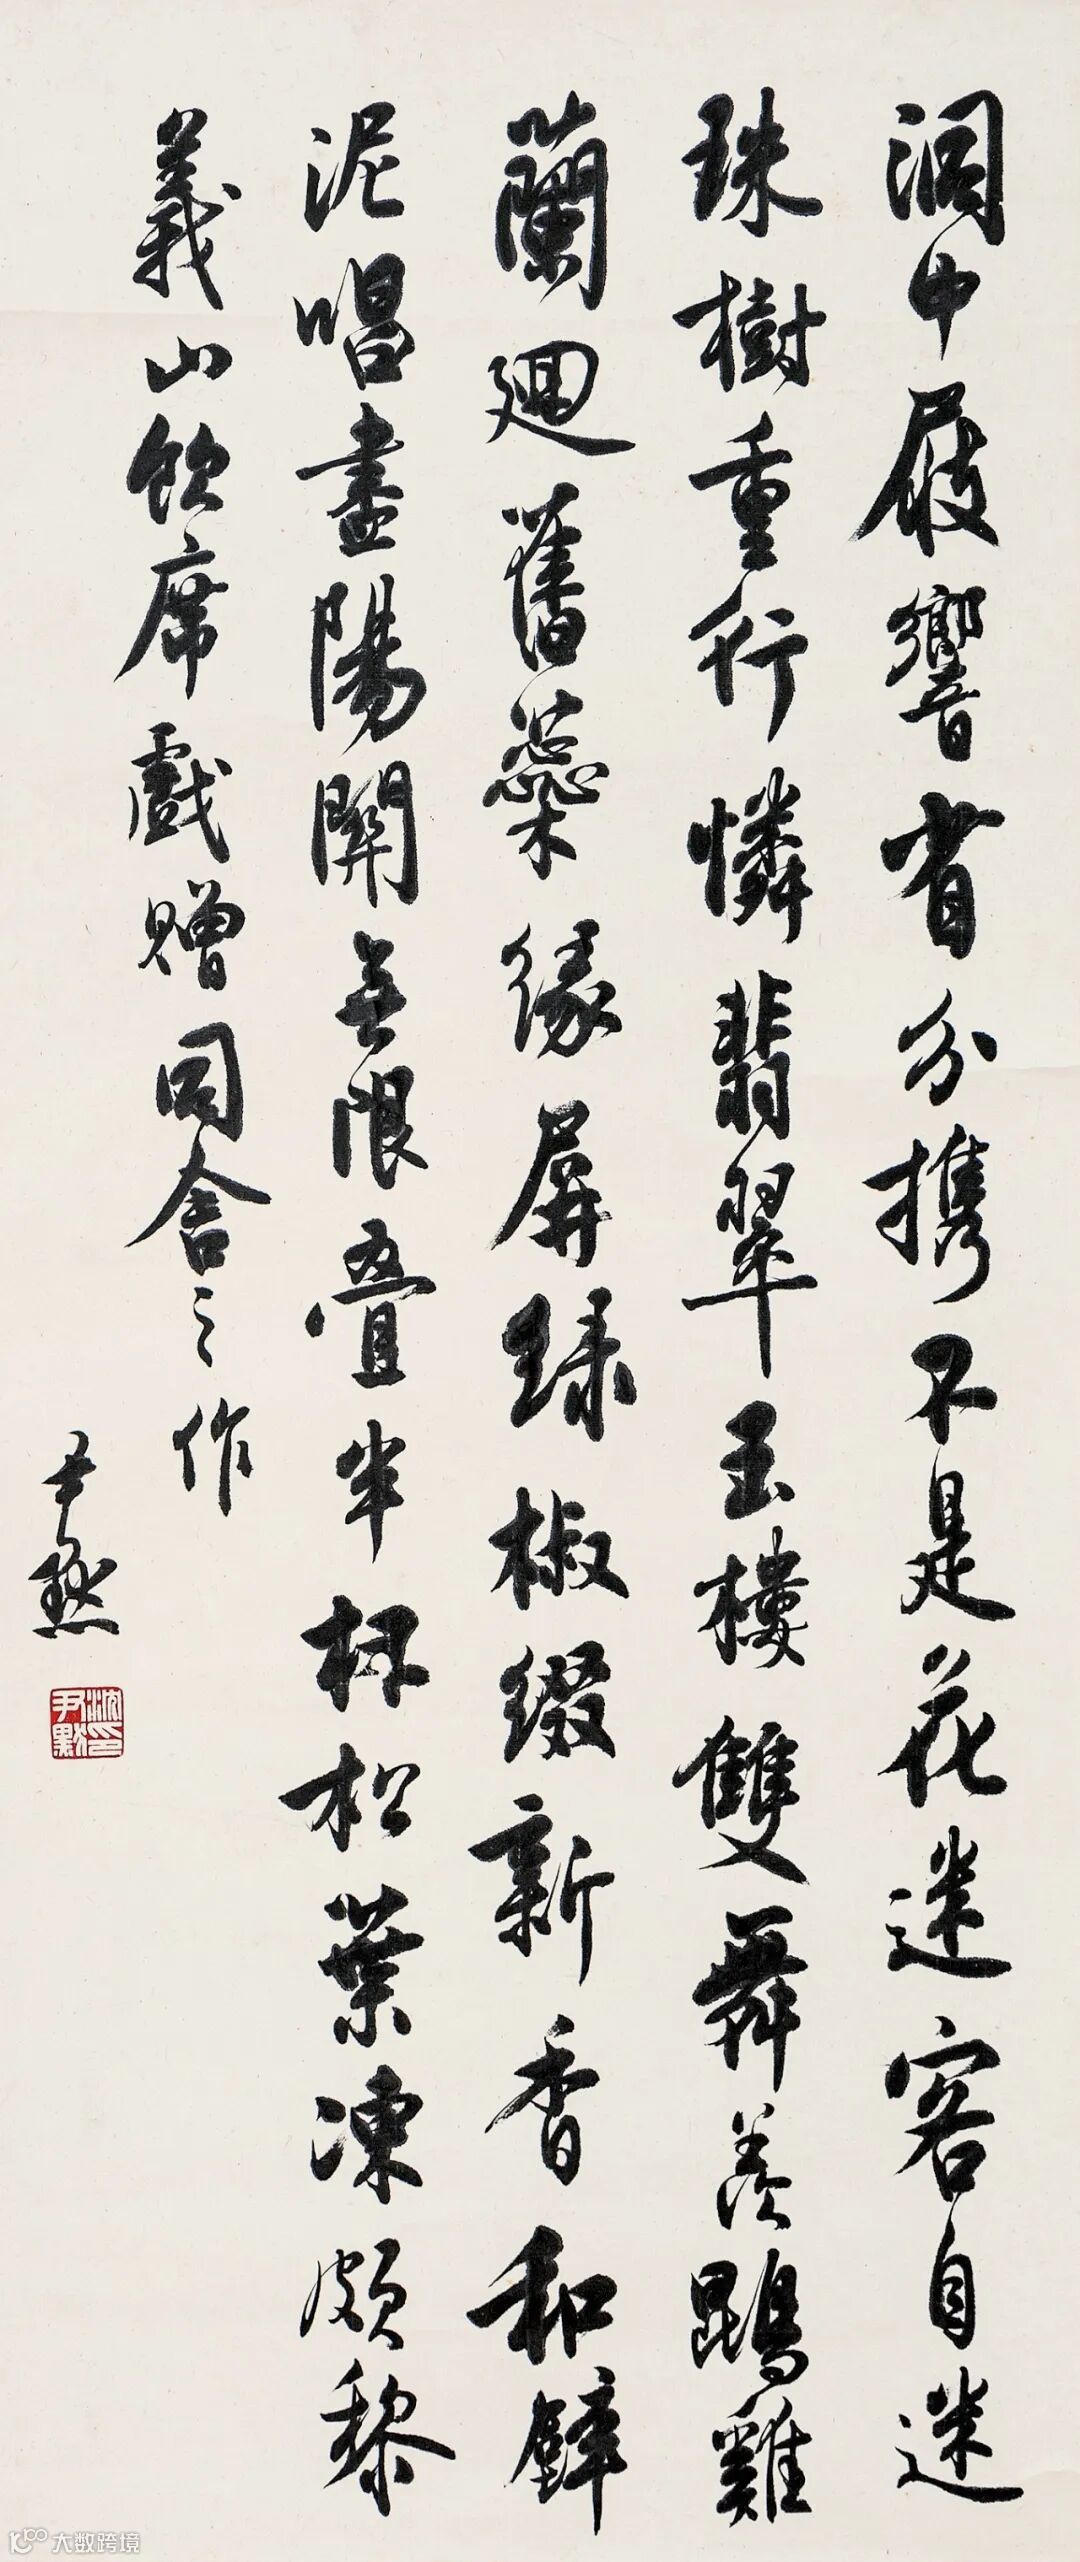 洞中屐響省分攜不是花迷客自迷
珠樹重行憐翡翠玉樓雙舞羨鵾雞
蘭迴舊蘂緣屏綠椒綴新香和壁
泥唱盡陽關無限疊半杯松葉凍頗黎
義山飲席戲贈同舍之作
尹默
沈尹默印
大数跨境